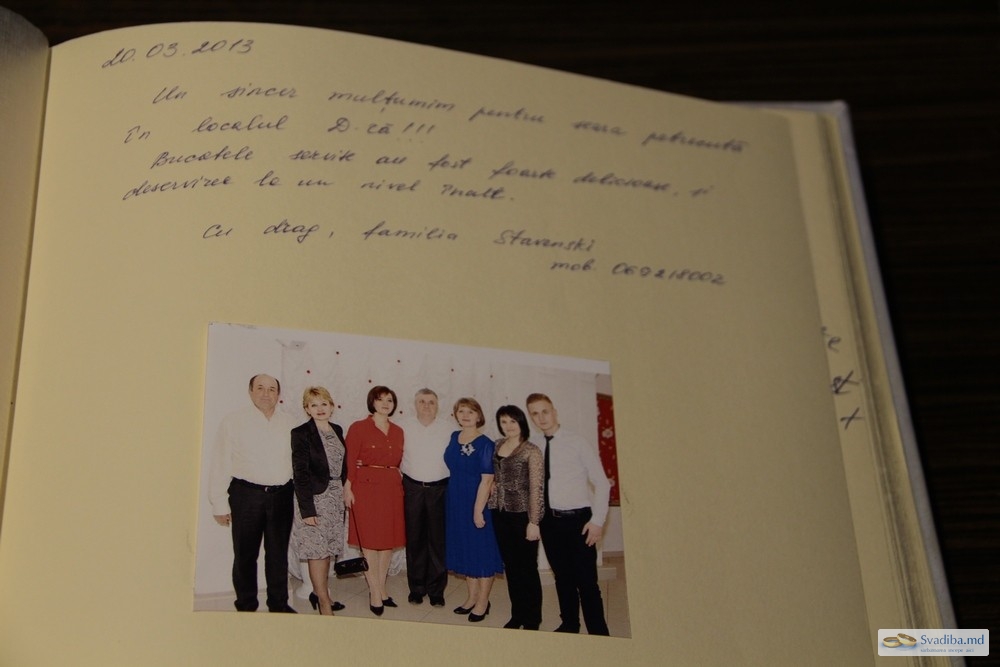 20.03.2013
Un sincer mulțumim pentru seara petrecută
în localul D-ră!!!
Bucatele servite au fost foarte delicioase, și
deservirea la un nivel înalt.
Cu drag, familia Stavenski
mob. 069218002
Svadiba.md